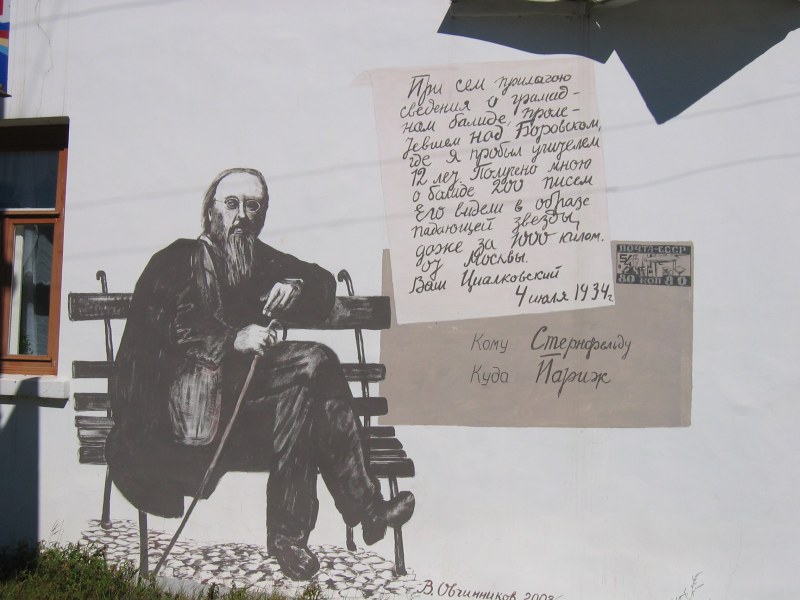 При сем прилагаю
сведения о грамад-
ном балиде, проле-
тевшем над Боровском,
где я пробыл учителем
12 лет Получено мною
о балиде 200 писем
Его видели в образе
падающей звезды,
даже за 1000 килом.
от Москвы.
Ваш Циалковский
4 июля 1934г
ПОЧТА-СССР
80 КОП 80
Кому Стернфельду
Куда Париж
В. Овчинников 2003